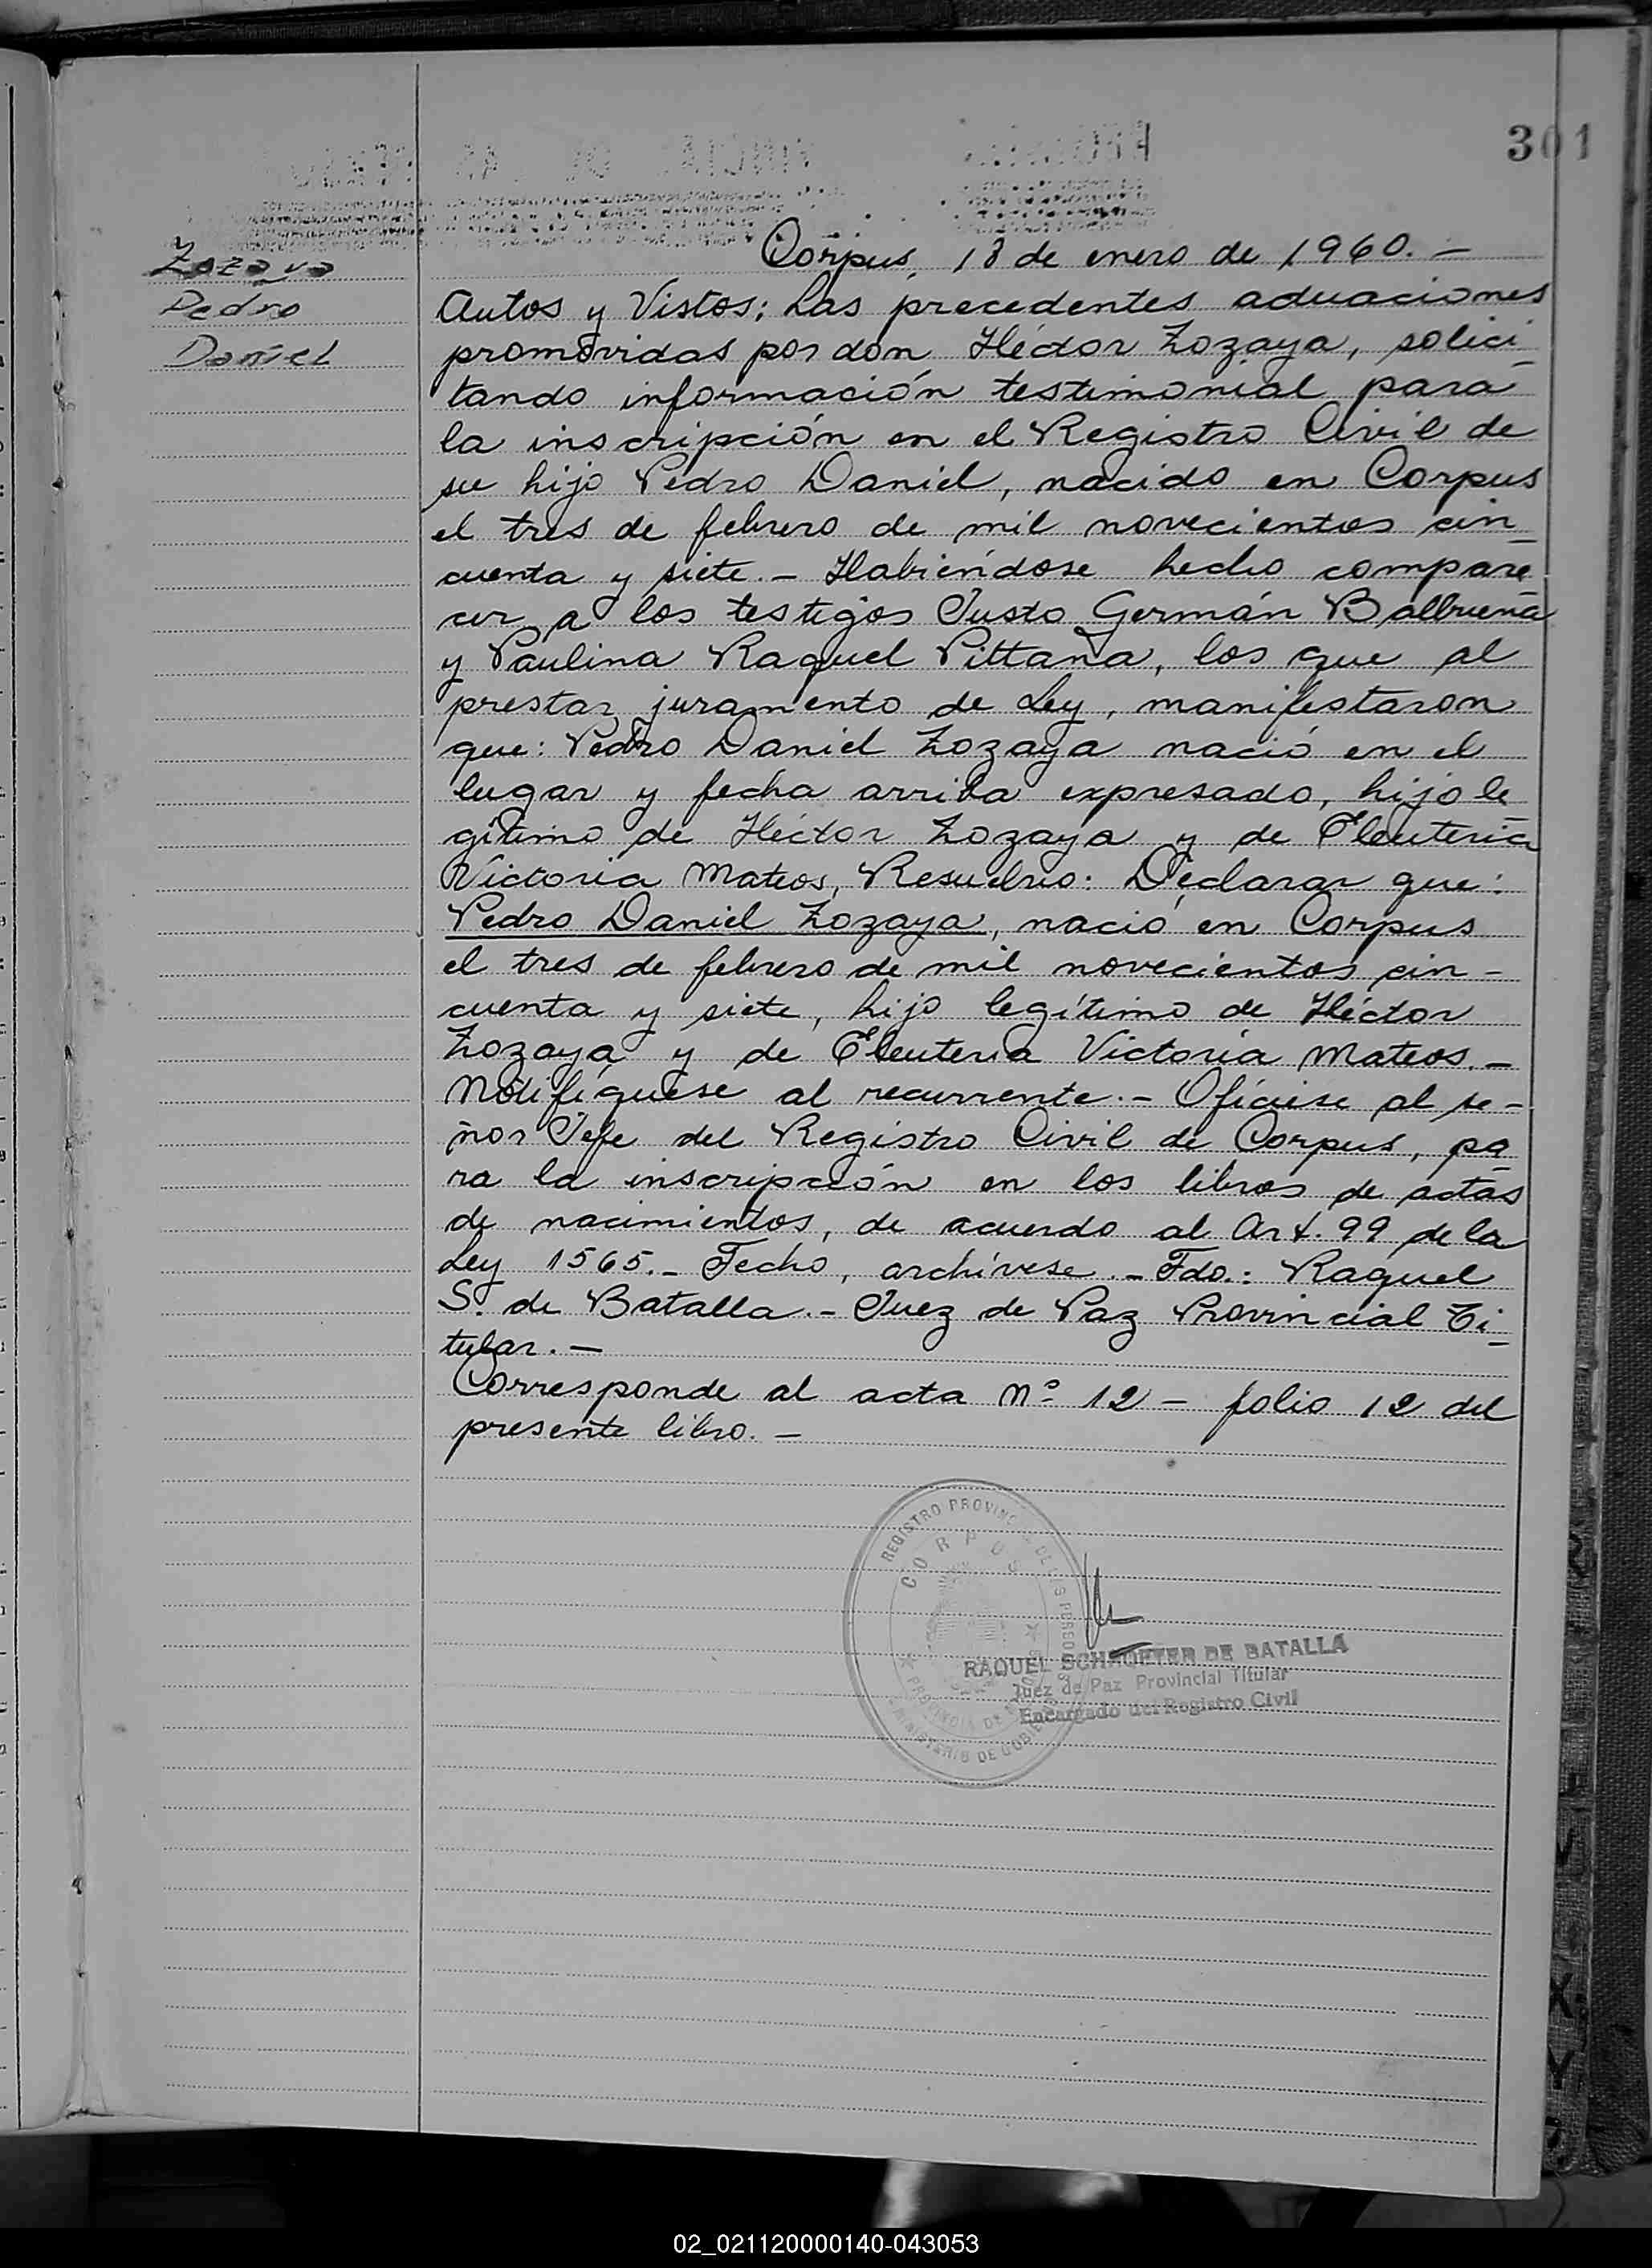 301
Zozaya
Pedro
Daniel
Corpus, 18 de enero de 1960.—
Autos y Vistos; Las precedentes actuaciones
promovidas por don Héctor Zozaya, solici-
tando información testimonial para
la inscripción en el Registro Civil de
su hijo Pedro Daniel, nacido en Corpus
el tres de febrero de mil novecientos cin-
cuenta y siete.- Habiéndose hecho compare-
cer a los testigos Justo Germán Balbuena
y Paulina Raquel Pittana, los que al
prestar juramento de Ley, manifestaron
que: Pedro Daniel Zozaya nació en el
lugar y fecha arriba expresado, hijo le-
gítimo de Héctor Zozaya y de Eleuteria
Victoria Mateos, Resuelvo: Declarar que:
Pedro Daniel Zozaya, nació en Corpus
el tres de febrero de mil novecientos cin-
cuenta y siete, hijo legítimo de Héctor
Zozaya y de Eleuteria Victoria Mateos.-
Notifíquese al recurrente.- Ofíciese al se-
ñor Jefe del Registro Civil de Corpus, pa-
ra la inscripción en los libros de actas
de nacimientos, de acuerdo al Art. 99 de la
Ley 1565.- Fecho, archívese.- Fdo.: Raquel
S. de Batalla.- Juez de Paz Provincial Ti-
tular.—
Corresponde al acta Nº 12 - folio 12 del
presente libro.—
REGISTRO PROVINCIAL DE LAS PERSONAS
CORPUS
PROVINCIA DE MISIONES
MINISTERIO DE GOBIERNO
RAQUEL SCHROETER DE BATALLA
Juez de Paz Provincial Titular
Encargado del Registro Civil
02_021120000140-043053